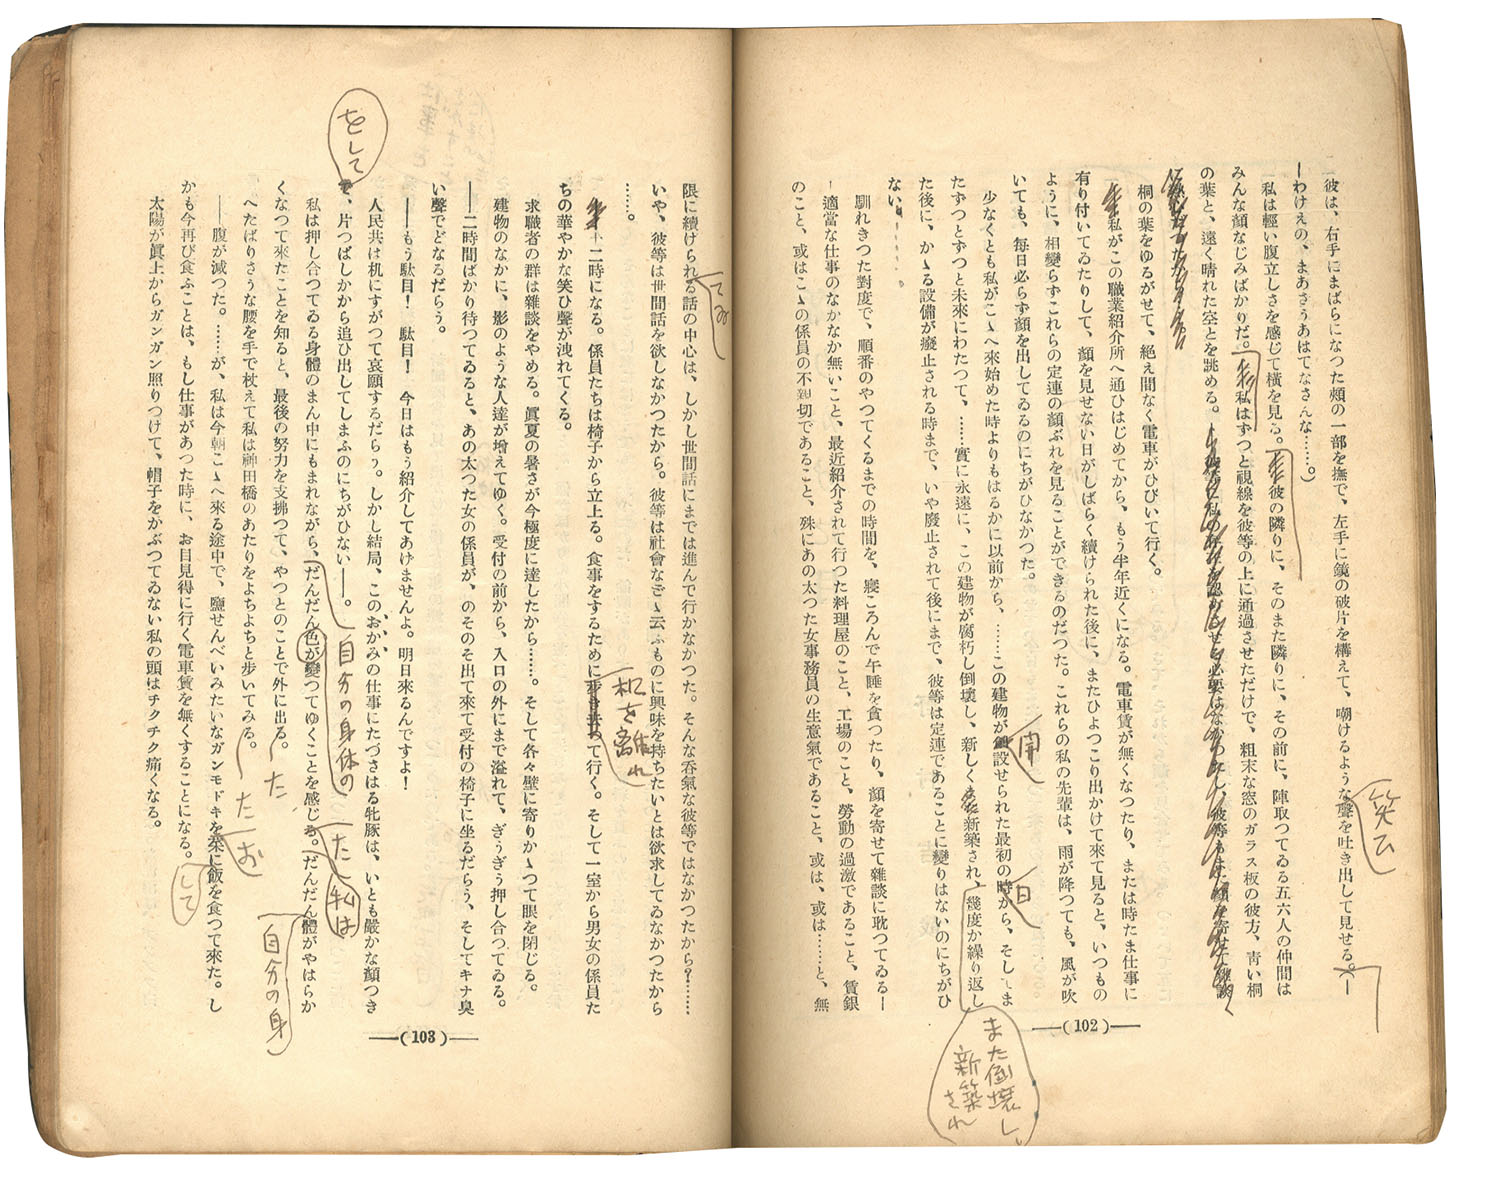 彼は、右手にまばらになつた頰の一部を撫で、左手に鏡の破片を構えて、嘲けるような聲を吐き出して見せる。(―
―わけえの、まあさうあはてなさんな……。)
私は輕い腹立しさを感じて橫を見る。彼の隣りに、そのまた隣りに、その前に、陣取つてゐる五六人の仲間は
みんな顔なじみばかりだ。私はずつと視線を彼等の上に通過させただけで、粗末な窓のガラス板の彼方、靑い桐
の葉と、遠く晴れた空とを眺める。
桐の葉をゆるがせて、絶え間なく電車がひびいて行く。
私がこの職業紹介所へ通ひはじめてから、もう半年近くになる。電車賃が無くなつたり、または時たま仕事に
有り付いてゐたりして、顔を見せない日がしばらく續けられた後に、またひよつこり出かけて來て見ると、いつもの
ように、相變らずこれらの定連の顔ぶれを見ることができるのだつた。これらの私の先輩は、雨が降つても、風が吹
いても、每日必らず顔を出してゐるのにちがひなかつた。
少なくとも私がこゝへ來始めた時よりもはるかに以前から、……この建物が創設せられた最初の時から、そしてま
たずつとずつと未來にわたつて、……實に永遠に、この建物が腐朽し倒壞し、新しくまた新築され、幾度か繰り返し
た後に、かゝる設備が癈止される時まで、いや廢止されて後にまで、彼等は定連であることに變りはないのにちがひ
ない……。
馴れきつた對度で、順番のやつてくるまでの時間を、寢ころんで午睡を貪つたり、顔を寄せて雜談に耽つてゐる―
―適當な仕事のなかなか無いこと、最近紹介されて行つた料理屋のこと、工場のこと、勞動の過激であること、賃銀
のこと、或はこゝの係員の不親切であること、殊にあの太つた女事務員の生意氣であること、或は、或は……と、無
笑ひ
開
自
また倒壞し、
新築され
―(102)―
限に續けられる話の中心は、しかし世間話にまでは進んで行かなかつた。そんな呑氣な彼等ではなかつたから?……
いや、彼等は世間話を欲しなかつたから。彼等は社會なごゝ云ふものに興味を持ちたいとは欲求してゐなかつたから
……。
十二時になる。係員たちは椅子から立上る。食事をするために步き去つて行く。そして一室から男女の係員た
ちの華やかな笑ひ聲が洩れてくる。
求職者の群は雜談をやめる。眞夏の暑さが今極度に達したから……。そして各々壁に寄りかゝつて眼を閉じる。
建物のなかに、影のような人達が增えてゆく。受付の前から、入口の外にまで溢れて、ぎうぎう押し合つてゐる。
――二時間ばかり待つてゐると、あの太つた女の係員が、のそのそ出て來て受付の椅子に坐るだらう、そしてキナ臭
い聲でどなるだらう。
――もう駄目! 駄目! 今日はもう紹介してあけませんよ。明日來るんですよ!
人民共は机にすがつて哀願するだらう。しかし結局、この、おかみの仕事にたづさはる牝豚は、いとも嚴かな顔つき
で、片つばしかから追ひ出してしまふのにちがひない――。
私は押し合つてゐる身體のまん中にもまれながら、だんだん色が變つてゆくことを感じる。だんだん體がやはらか
くなつて來たことを知ると、最後の努力を支拂つて、やつとのことで外に出る。
へたばりさうな腰を手で杖えて私は神田橋のあたりをよちよちと步いてみる。
――腹が減つた。……が、私は今朝こゝへ來る途中で、鹽せんべいみたいなガンモドキを菜に飯を食つて來た。し
かも今再び食ふことは、もし仕事があつた時に、お目見得に行く電車賃を無くすることになる。
太陽が眞上からガンガン照りつけて、帽子をかぶつてゐない私の頭はチクチク痛くなる。
てゐ
机を離れ
をして
自分の身体の
た 私は
自分の身
た
た
お
して
―(103)―